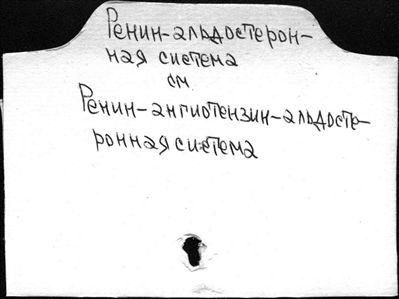 Ренин-альдостерон-
ная система
см
Ренин-ангиотензин-альдосте-
ронная система